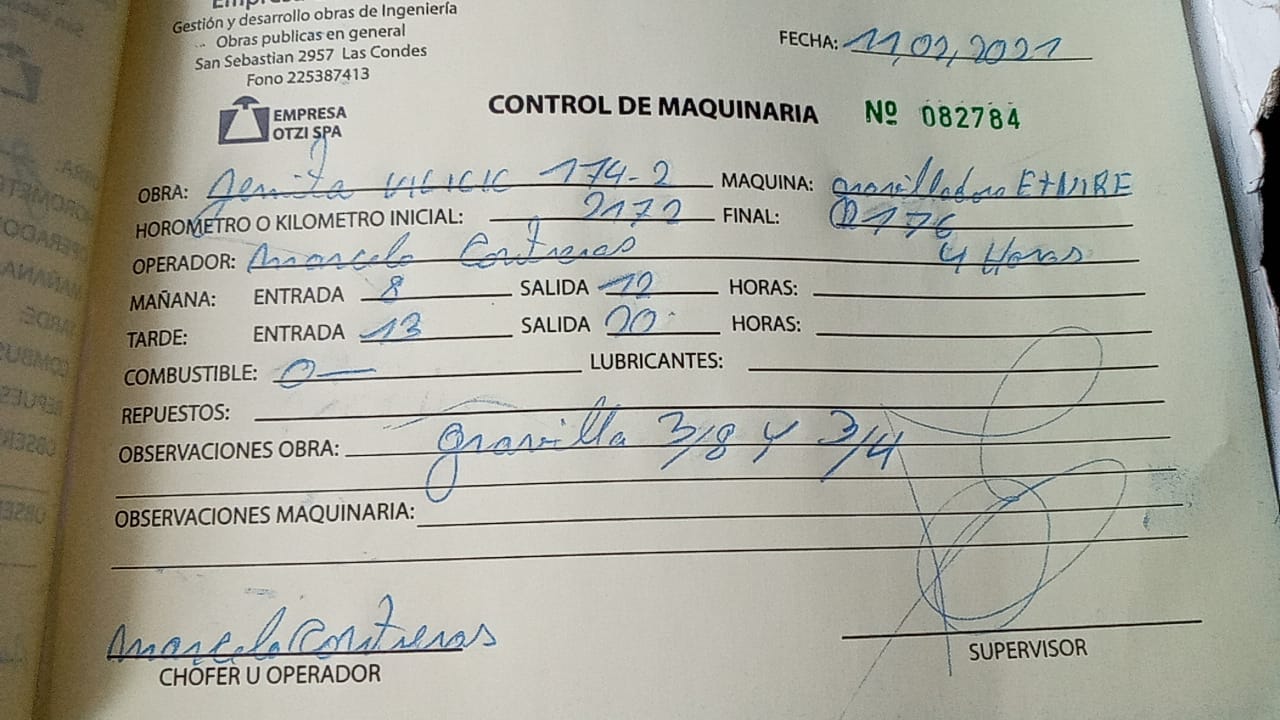 Gestión y desarrollo obras de Ingeniería
Obras publicas en general
San Sebastian 2957 Las Condes
Fono 225387413
FECHA: 11,02,2021
EMPRESA
OTZI SPA
CONTROL DE MAQUINARIA Nº 082784
OBRA: VILICIC 174-2 MAQUINA: gravilladora ETNIRE
HOROMETRO O KILOMETRO INICIAL: 2172 FINAL: 2176
OPERADOR: Marcelo Contreras 4 Horas
MAÑANA: ENTRADA 8 SALIDA 12 HORAS:
TARDE: ENTRADA 13 SALIDA 20 HORAS:
COMBUSTIBLE: 0 LUBRICANTES:
REPUESTOS:
OBSERVACIONES OBRA: gravilla 3/8 y 3/4
OBSERVACIONES MAQUINARIA:
Marcelo Contreras
CHOFER U OPERADOR
SUPERVISOR